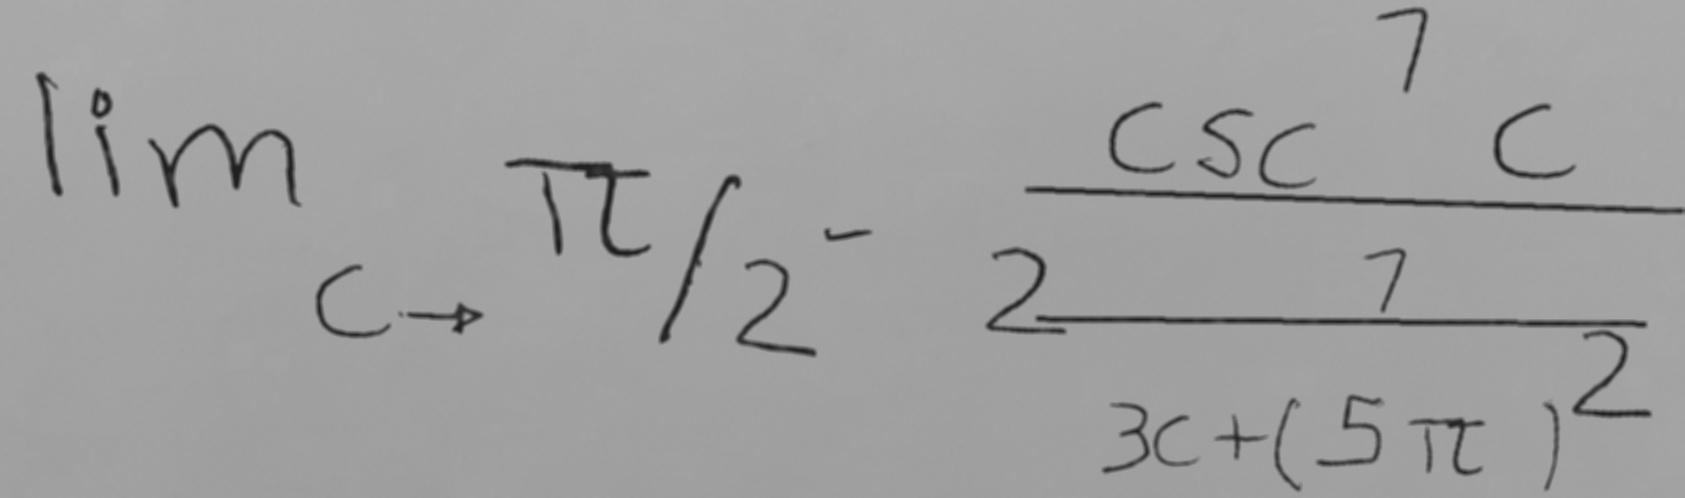 \lim_{c \to \pi/2^-} \frac{\csc^7 c}{2 \frac{7}{3c + (5\pi)^2}}